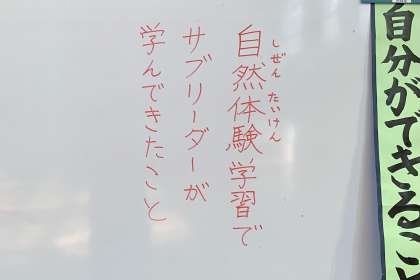 自分ができること
しぜん たいけん
自然体験学習で
サブリーダーが
学んできたこと